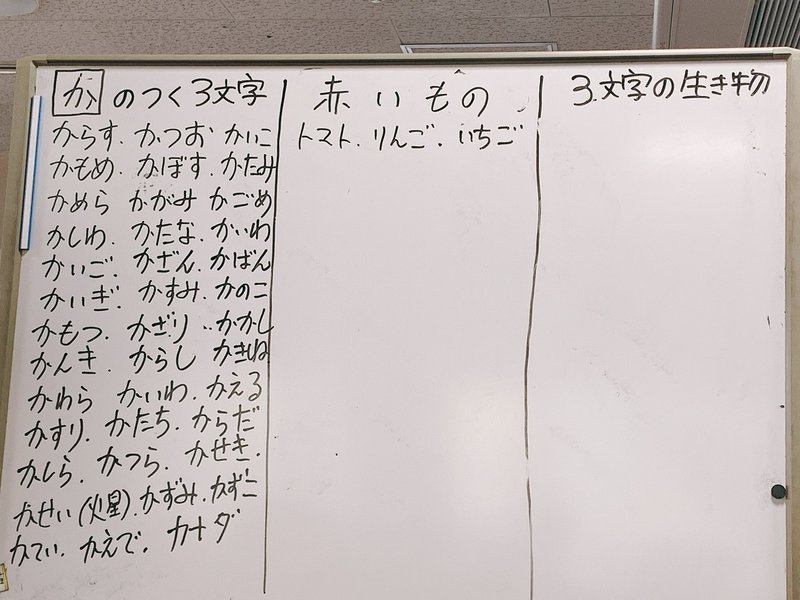 かのつく3文字
からす.かつお かいこ
かもめ.かぼす.かたみ
かめら かがみ かごめ
かしわ.かたな.かいわ
かいご.かざん.かばん
かいぎ.かすみ.かのこ
かもつ.かざり..かかし
かんき.からし かきね
かわら かいわ.かえる
かすり.かたち.からだ
かしら.かつら.かせき.
かせい(火星).かずみ.かずこ
かてい.かえで.カナダ
赤いもの
トマト.りんご.いちご
3文字の生き物